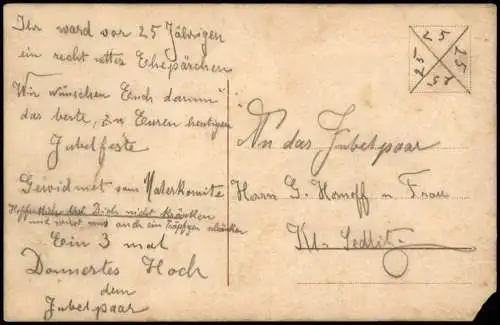 Ihr ward vor 25 Jährigen
ein recht nettes Ehepärchen
Wir wünschen Euch darum
das beste, zu Euren heutigen
Jubelfeste
Gewidmet vom
Hoffentlich Dich nicht kränken
und wirst uns auch ein Tröpfchen schänken
Ein 3 mal
Donnertes Hoch
dem
Jubelpaar
25
25
25
25
An das Jubelpaar
Herrn G. u Frau
Kl. Sedlitz